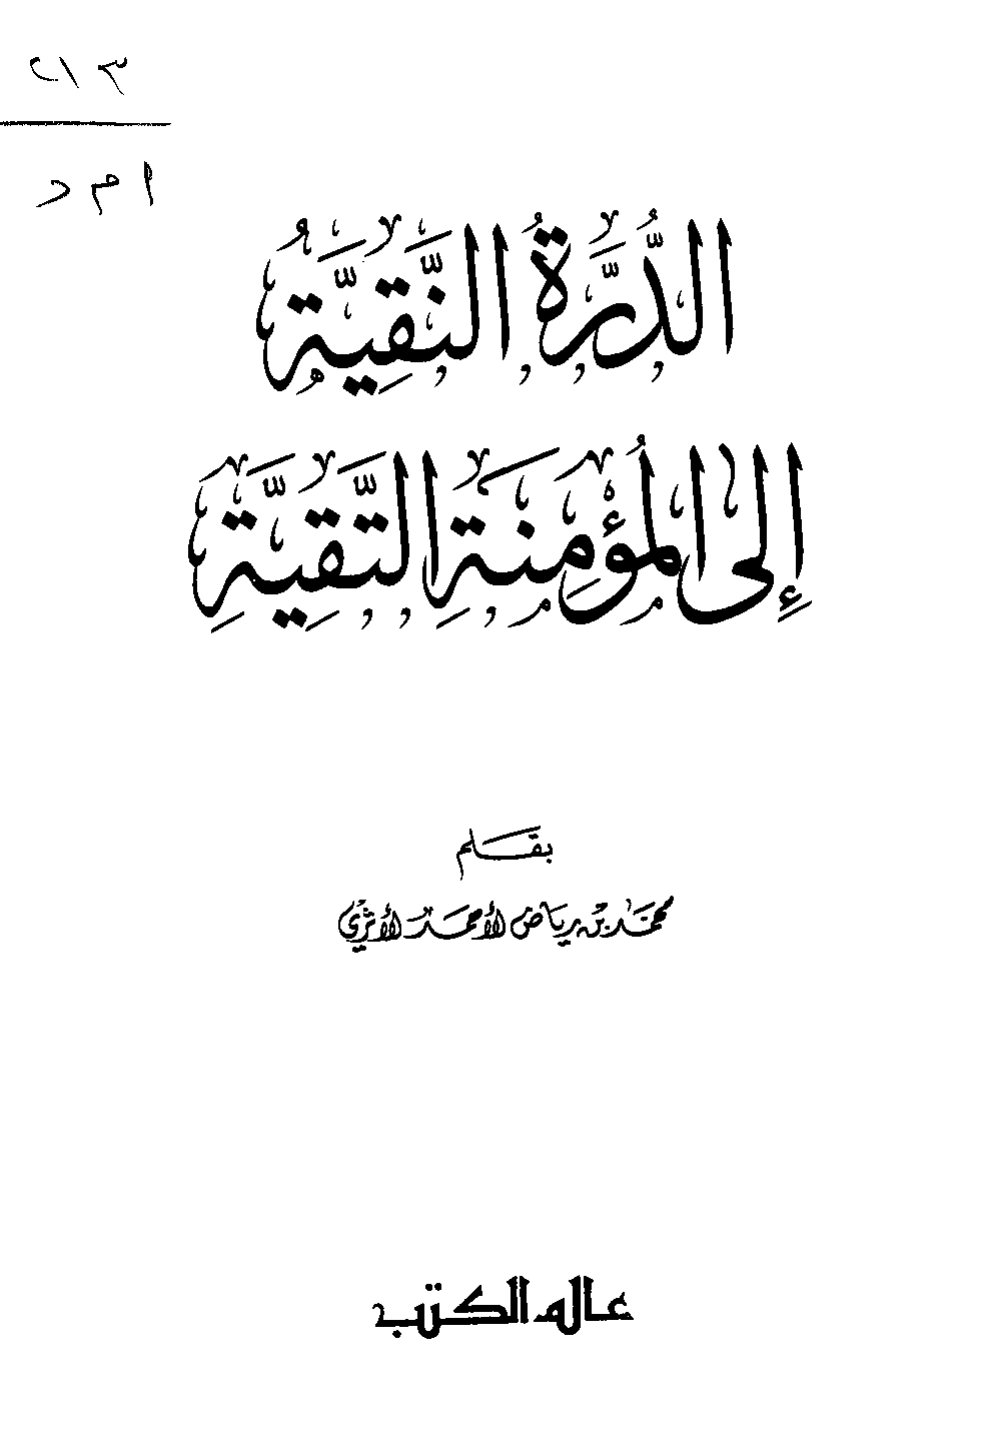 ٢١٣
ا م د
الدُّرَّةُ النَّقِيَّةُ
إِلَى المُؤْمِنَةِ التَّقِيَّةِ
بقلم
محمد بن رياض الأحمد الأثري
عالم الكتب